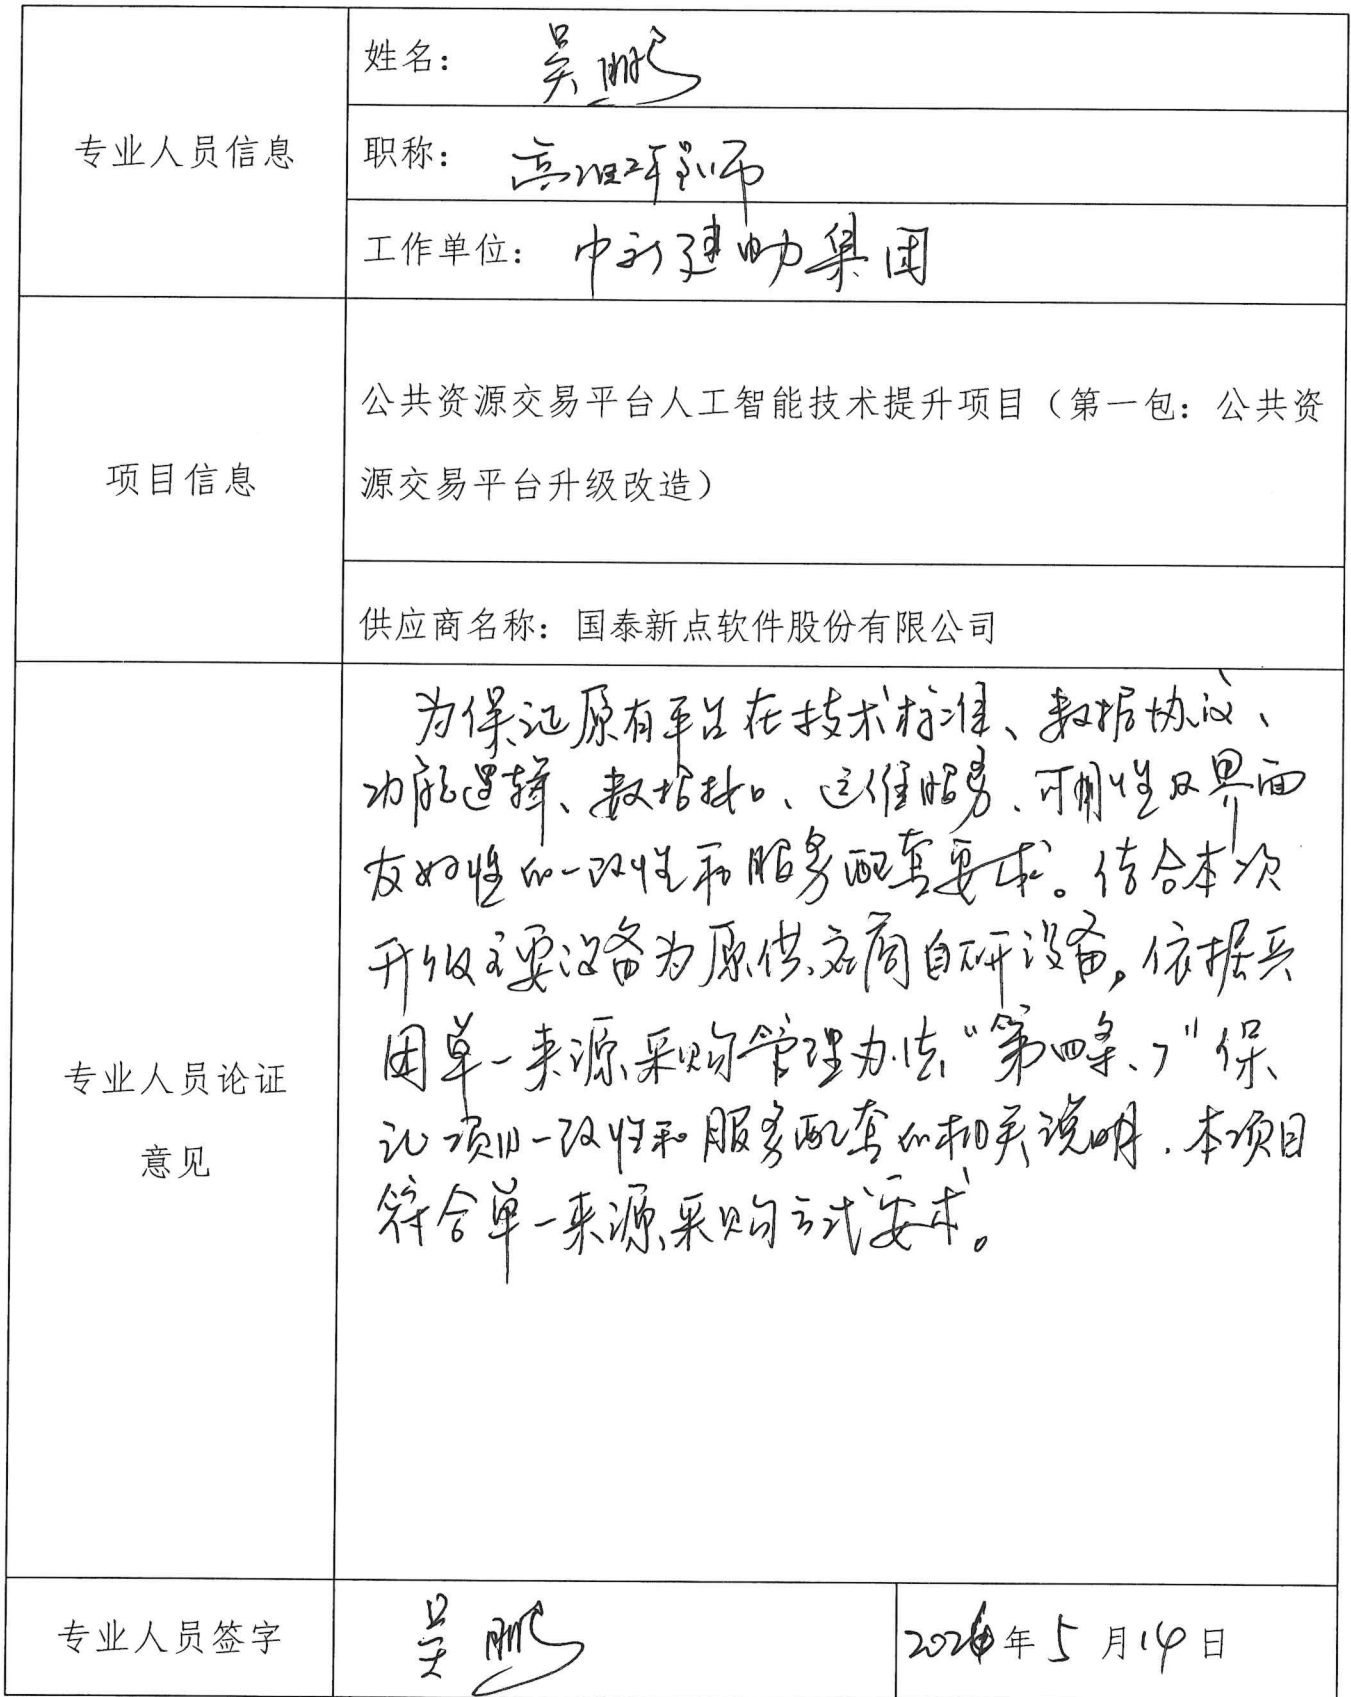 专业人员信息
姓名： 吴鹏
职称： 高级工程师
工作单位： 中新建 集团
项目信息
公共资源交易平台人工智能技术提升项目（第一包：公共资
源交易平台升级改造）
供应商名称：国泰新点软件股份有限公司
专业人员论证
意见
为保证原有平台在技术标准、数据协议、
功能逻辑、数据接口、运维服务、可用性及界面
友好性的一致性和服务配套要求。结合本次
升级主要设备为原供应商自研设备。依据兵
团单一来源采购管理办法“第四条、 ”保
证项目一致性和服务配套的相关说明，本项目
符合单一来源采购方式要求。
专业人员签字
吴鹏
年5月14日